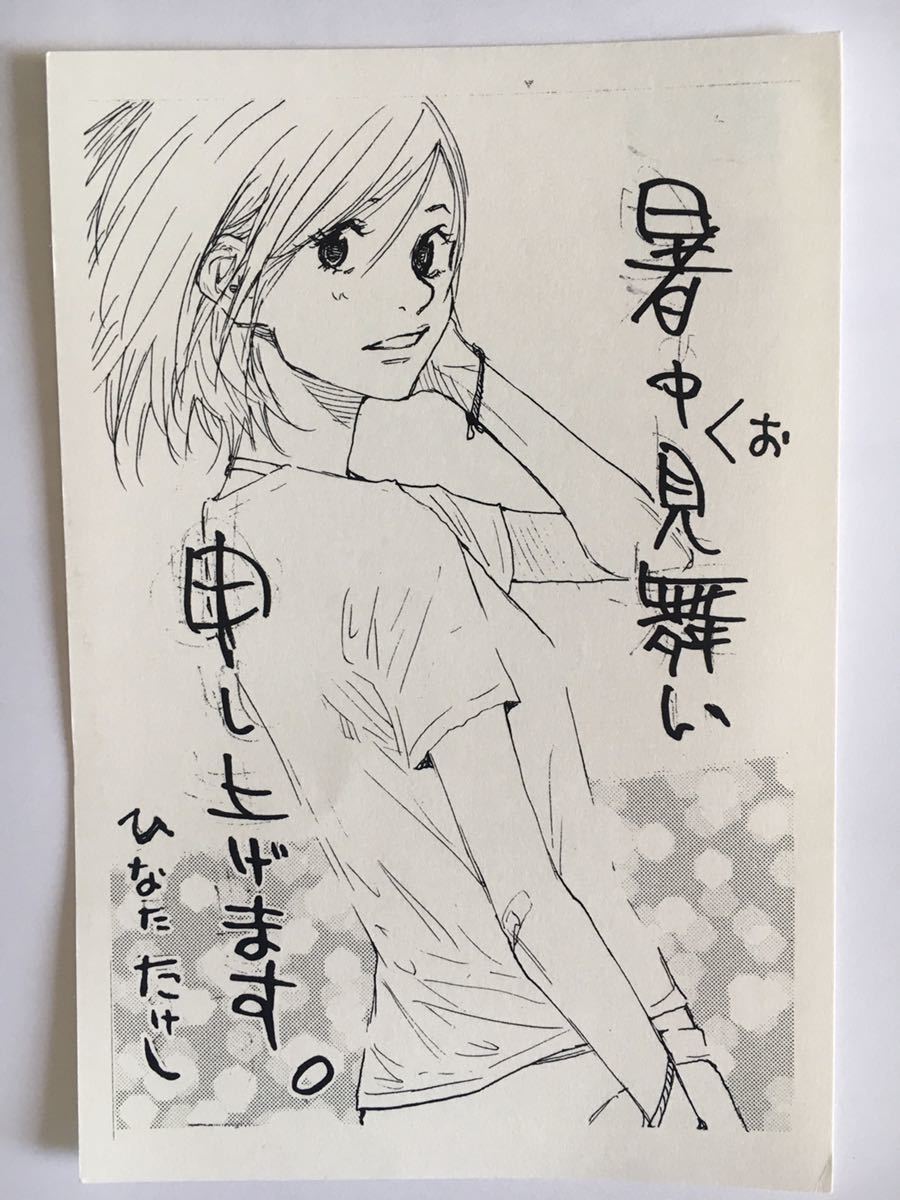 暑中お見舞い
申し上げます。
ひなたたけし